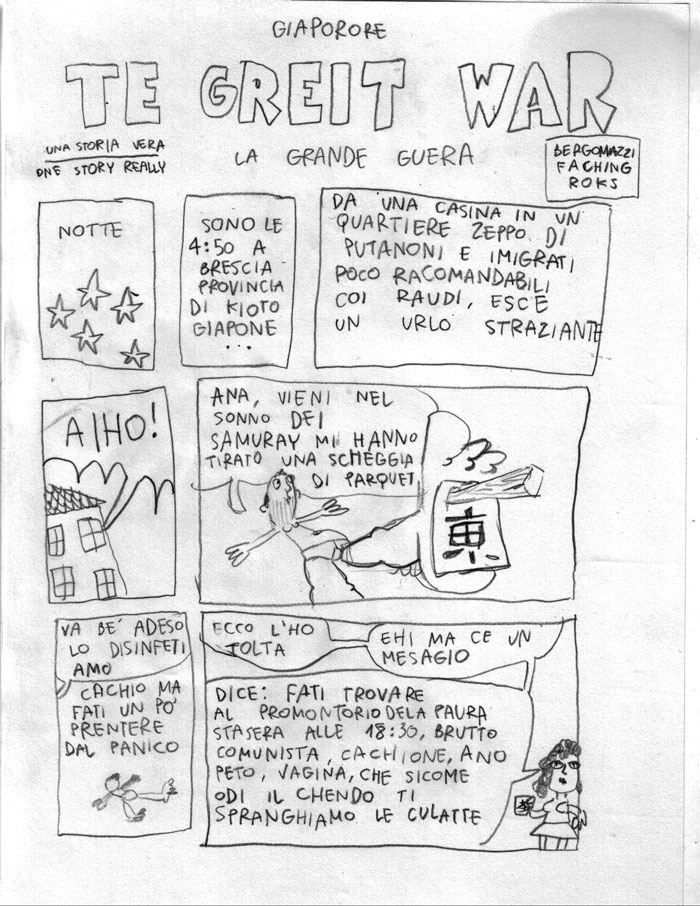 GIAPORORE
TE GREIT WAR
UNA STORIA VERA
ONE STORY REALLY
LA GRANDE GUERA
BERGOMAZZI
FACHING
ROKS
NOTTE
SONO LE
4:50 A
BRESCIA
PROVINCIA
DI KIOTO
GIAPONE
...
DA UNA CASINA IN UN
QUARTIERE ZEPPO DI
PUTANONI E IMIGRATI
POCO RACOMANDABILI
COI RAUDI, ESCE
UN URLO STRAZIANTE
AIHO!
ANA, VIENI NEL
SONNO DEI
SAMURAY MI HANNO
TIRATO UNA SCHEGGIA
DI PARQUET
VA BE' ADESO
LO DISINFETI
AMO
CACHIO MA
FATI UN PO'
PRENTERE
DAL PANICO
ECCO L'HO
TOLTA
EHI MA CE UN
MESAGIO
DICE: FATI TROVARE
AL PROMONTORIO DELA PAURA
STASERA ALLE 18:30, BRUTTO
COMUNISTA, CACHIONE, ANO
PETO, VAGINA, CHE SICOME
ODI IL CHENDO TI
SPRANGHIAMO LE CULATTE